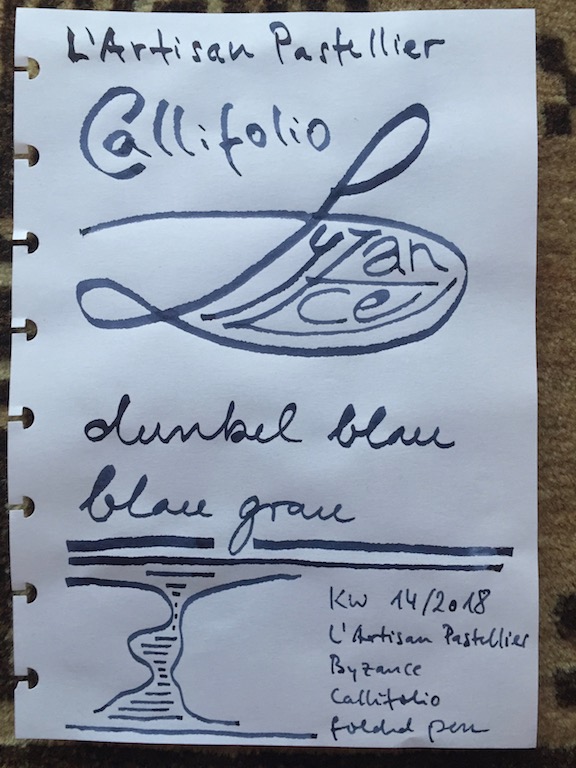 L'Artisan Pastellier
Callifolio
Byzan
ce
dunkel blau
blau grau
KW 14/2018
L'Artisan Pastellier
Byzance
Callifolio
folded pen